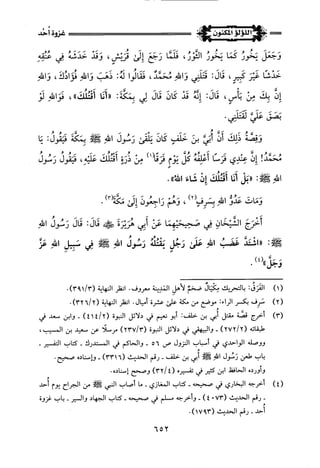 اللؤلؤ المكنون
غزوة أحد
وَجَعَلَ يَخُورُ كَمَا يَخُورُ الثَّوْرُ، فَلَمَّا رَجَعَ إِلَىٰ قُرَيْشٍ، وَقَدْ خَدَشَهُ فِي عُنُقِهِ
خَدْشًا غَيْرَ كَبِيرٍ، قَالَ: قَتَلَنِي وَاللهِ مُحَمَّدٌ، فَقَالُوا لَهُ: ذَهَبَ وَاللهِ فُؤَادُكَ، وَاللهِ
إِنْ بِكَ مِنْ بَأْسٍ، قَالَ: إِنَّهُ قَدْ كَانَ قَالَ لِي بِمَكَّةَ: «أَنَا أَقْتُلُكَ»، فَوَاللهِ لَوْ
بَصَقَ عَلَيَّ لَقَتَلَنِي.
وَقِصَّةُ ذَلِكَ أَنَّ أُبَيَّ بنَ خَلَفٍ كَانَ يَلْقَىٰ رَسُولَ اللهِ ﷺ بِمَكَّةَ فَيَقُولُ: يَا
مُحَمَّدُ! إِنَّ عِنْدِي فَرَسًا أَعْلِفُهُ كُلَّ يَوْمٍ فَرَقًا(١) مِنْ ذُرَةٍ أَقْتُلُكَ عَلَيْهِ، فَيَقُولُ رَسُولُ
اللهِ ﷺ: «بَلْ أَنَا أَقْتُلُكَ إِنْ شَاءَ اللهُ».
وَمَاتَ عَدُوُّ اللهِ بِسَرِفٍ(٢)، وَهُمْ رَاجِعُونَ إِلَىٰ مَكَّةَ(٣).
أَخْرَجَ الشَّيْخَانِ فِي صَحِيحَيْهِمَا عَنْ أَبِي هُرَيْرَةَ ﷺ قَالَ: قَالَ رَسُولُ اللهِ
ﷺ: «اشْتَدَّ غَضَبُ اللهِ عَلَىٰ رَجُلٍ يَقْتُلُهُ رَسُولُ اللهِ ﷺ فِي سَبِيلِ اللهِ عَزَّ
وَجَلَّ»(٤).
(١) الفَرَقُ: بالتحريك مِكْيَالٌ ضخم لأهل المدينة معروف. انظر النهاية (٣٩١/٣).
(٢) سَرِف بكسر الراء: موضع من مكة على عشرة أميال. انظر النهاية (٣٢٦/٢).
(٣) أخرج قصة مقتل أبي بن خلف: أبو نعيم في دلائل النبوة (٤١٤/٢) ـ وابن سعد في
طبقاته (٢٧٢/٢) ـ والبيهقي في دلائل النبوة (٢٣٧/٣) مرسلًا عن سعيد بن المسيب،
ووصله الواحدي في أسباب النزول ص ٥٦ ـ والحاكم في المستدرك ـ كتاب التفسير ـ
باب طعن رسول الله ﷺ أبي بن خلف ـ رقم الحديث (٣٣١٦) ـ وإسناده صحيح.
وأورده الحافظ ابن كثير في تفسيره (٣٢/٤) وصحح إسناده.
(٤) أخرجه البخاري في صحيحه ـ كتاب المغازي ـ باب ما أصاب النبي ﷺ من الجراح يوم أحد
ـ رقم الحديث (٤٠٧٣) ـ وأخرجه مسلم في صحيحه ـ كتاب الجهاد والسير ـ باب غزوة
أحد ـ رقم الحديث (١٧٩٣).
٦٥٢